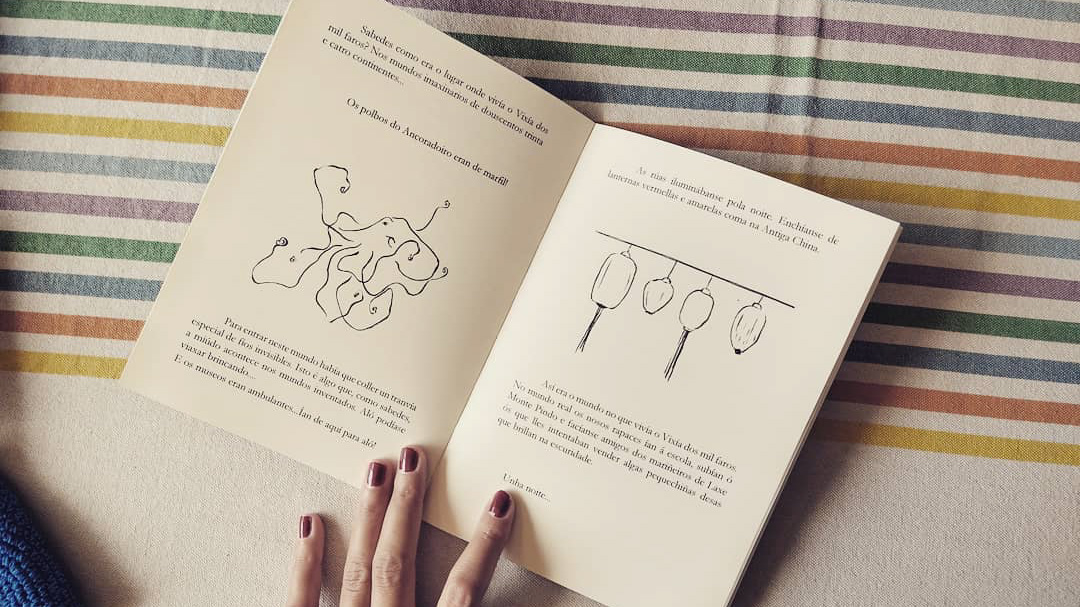 Sabedes como era o lugar onde vivía o Vixía dos
mil faros? Nos mundos imaxinarios de douscentos trinta
e catro continentes...
Os polbos do Ancoradoiro eran de marfil!
Para entrar neste mundo había que coller un tranvía
especial de fíos invisibles. Isto é algo que, como sabedes,
a miúdo acontece nos mundos inventados. Aló podíase
viaxar brincando...
E os museos eran ambulantes...Ían de aquí para aló!
As rúas iluminábanse pola noite. Enchíanse de
lanternas vermellas e amarelas coma na Antiga China.
Así era o mundo no que vivía o Vixía dos mil faros.
No mundo real os nosos rapaces ían á escola, subían ó
Monte Pindo e facíanse amigos dos mariñeiros de Laxe
ós que lles intentaban vender algas pequechiñas desas
que brillan na escuridade.
Unha noite...